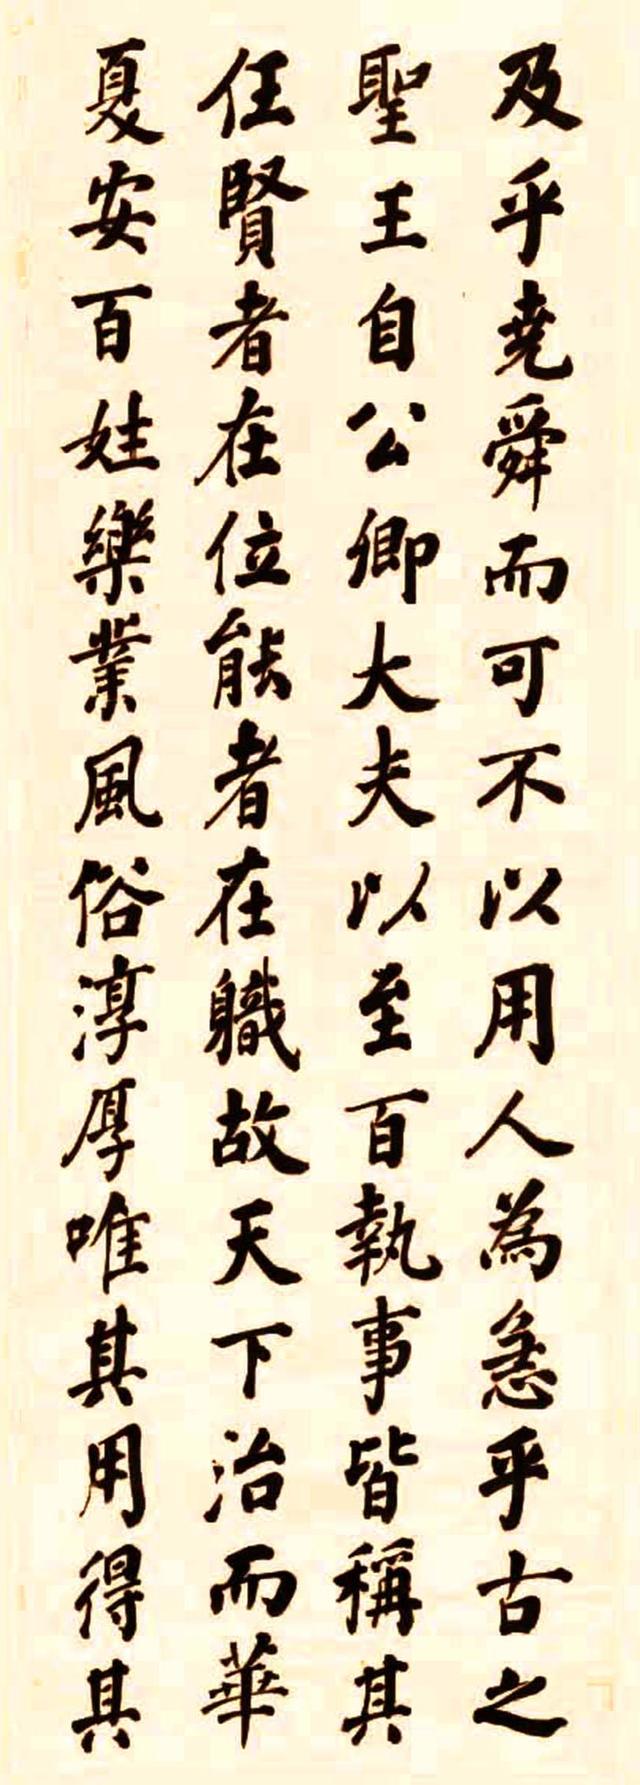 及乎堯舜而可不以用人為急乎古之
聖王自公卿大夫以至百執事皆稱其
任賢者在位能者在職故天下治而華
夏安百姓樂業風俗淳厚唯其用得其